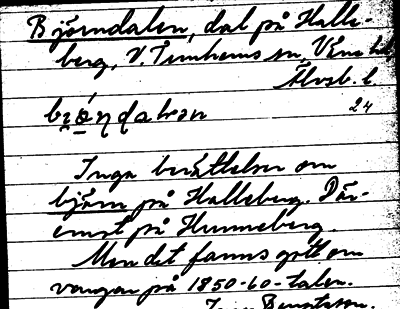 Björndalen, dal på Halle-
berg, V. Tunhems sn, Väne hd
Älvsb. l.
24
Inga berättelser om
björn på Halleberg. Där-
emot på Hunneberg.
Men det fanns gott om
vargar på 1850-60-talen.
Bengtsson.